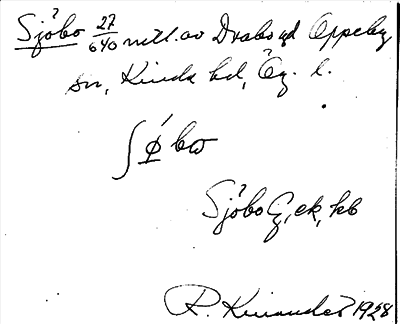 Sjöbo 27/640 mtl. av Drabo gd Oppeby
sn, Kinda hd, Ög. l.
ʃø̀ bω
Sjöbo G, ek, kb
R. Kinander 1928